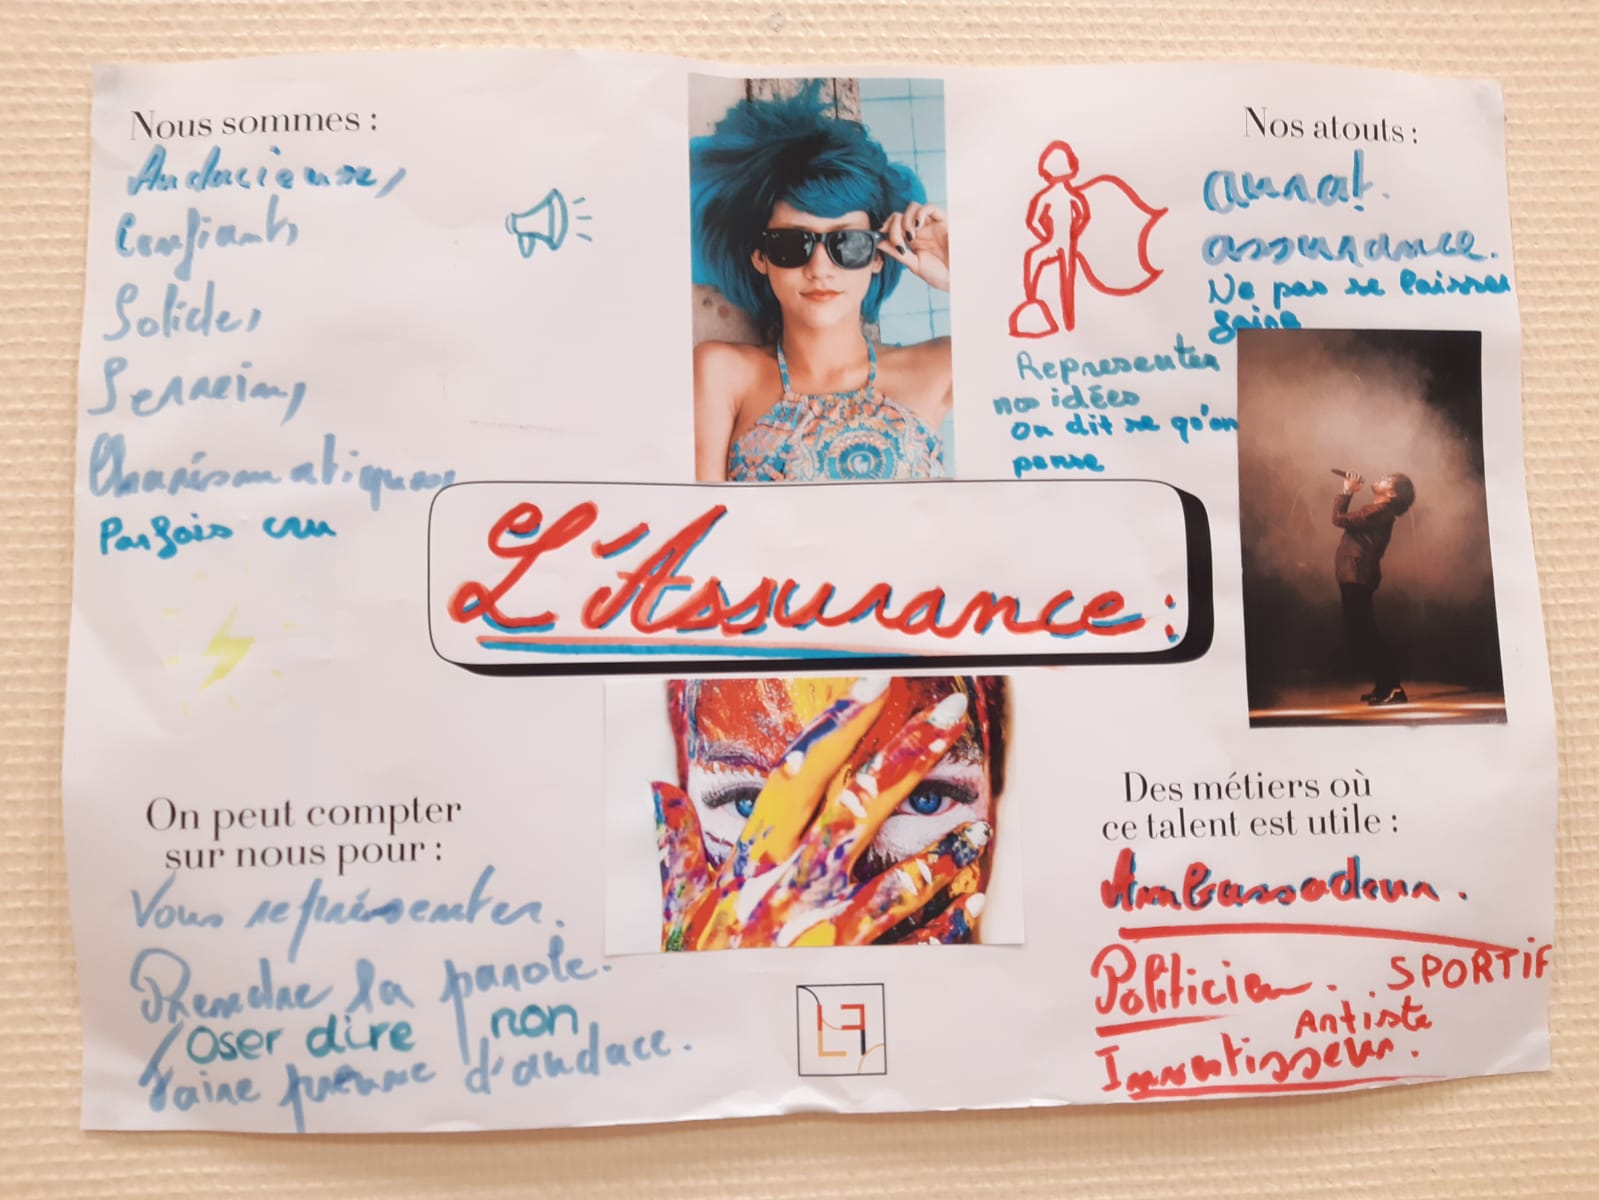 Nous sommes :
Audacieuse,
Confiants
Solide,
Serreins,
Charismatiques
Parfois cru
Nos atouts :
assurance.
Ne pas se laisser
faire
Representer
nos idées
On dit se qu'on
pense
L'Assurance :
On peut compter
sur nous pour :
Vous représenter.
Prendre la parole.
Oser dire non
Faire preuve d'audace.
Des métiers où
ce talent est utile :
Ambassadeur.
Politicien. SPORTIF
Artiste
Investisseur.
LF